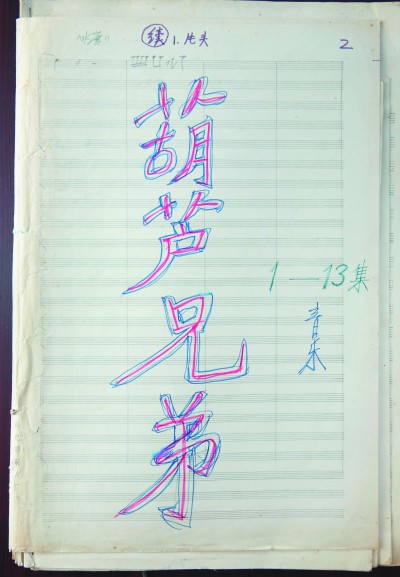 续 1.片头 2
葫芦兄弟
1—13集
音乐